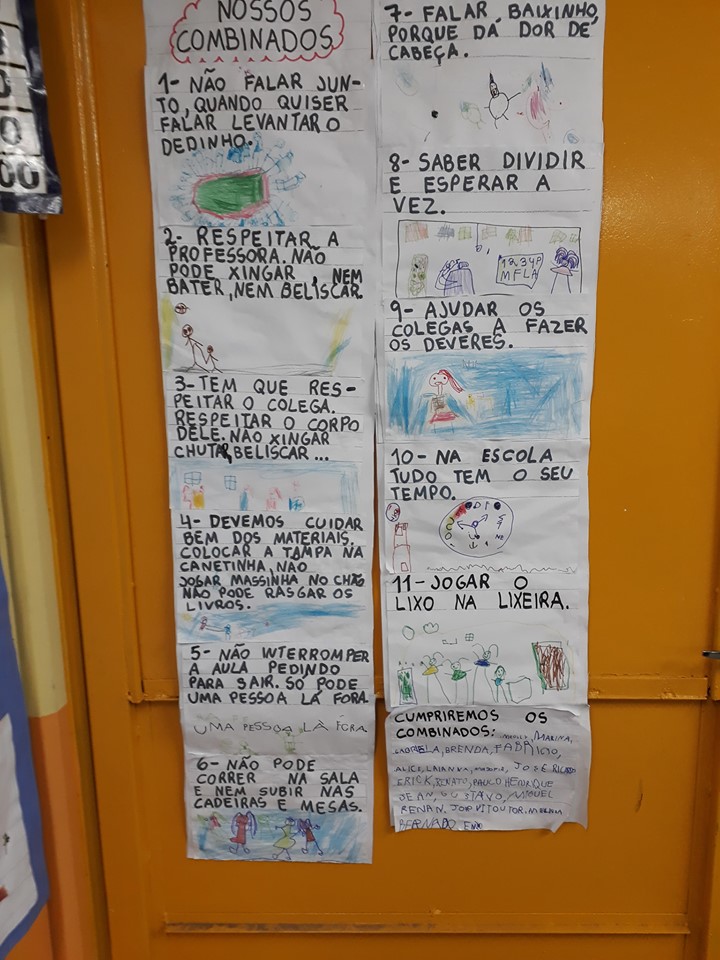 NOSSOS
COMBINADOS
1- NÃO FALAR JUN-
TO, QUANDO QUISER
FALAR LEVANTAR O
DEDINHO.
2- RESPEITAR A
PROFESSORA. NÃO
PODE XINGAR, NEM
BATER, NEM BELISCAR.
3- TEM QUE RES-
PEITAR O COLEGA.
RESPEITAR O CORPO
DELE. NÃO XINGAR
CHUTAR, BELISCAR...
4- DEVEMOS CUIDAR
BEM DOS MATERIAIS,
COLOCAR A TAMPA NA
CANETINHA, NÃO
JOGAR MASSINHA NO CHÃO
NÃO PODE RASGAR OS
LIVROS.
5- NÃO INTERROMPER
A AULA PEDINDO
PARA SAIR. SÓ PODE
UMA PESSOA LÁ FORA
UMA PESSOA LÁ FORA
6- NÃO PODE
CORRER NA SALA
E NEM SUBIR NAS
CADEIRAS E MESAS.
7- FALAR BAIXINHO,
PORQUE DÁ DOR DE
CABEÇA.
8- SABER DIVIDIR
E ESPERAR A
VEZ.
9- AJUDAR OS
COLEGAS A FAZER
OS DEVERES.
10- NA ESCOLA
TUDO TEM O SEU
TEMPO.
11- JOGAR O
LIXO NA LIXEIRA.
CUMPRIREMOS OS
COMBINADOS: MARINA,
GABRIELA, BRENDA, FABRICIO,
ALICE, LAIANNA, JOSÉ RICARDO
ERICK, RENATO, PAULO HENRIQUE
JEAN, GUSTAVO, MIGUEL
RENAN,
BERNARDO
00